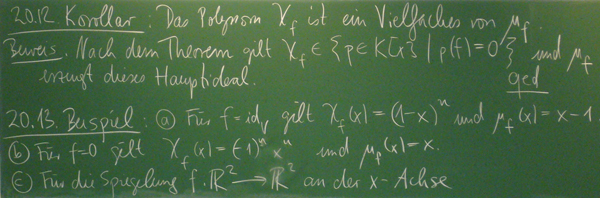 20.12. Korollar: Das Polynom χ_f ist ein Vielfaches von μ_f.
Beweis. Nach dem Theorem gilt χ_f ∈ {p ∈ K[x] | p(f) = 0} und μ_f
erzeugt dieses Hauptideal. qed
20.13. Beispiel: ⓐ Für f = id_V gilt χ_f(x) = (1-x)^n und μ_f(x) = x-1.
ⓑ Für f=0 gilt χ_f(x) = (-1)^n x^n und μ_f(x) = x.
ⓒ Für die Spiegelung f: ℝ² → ℝ² an der x-Achse